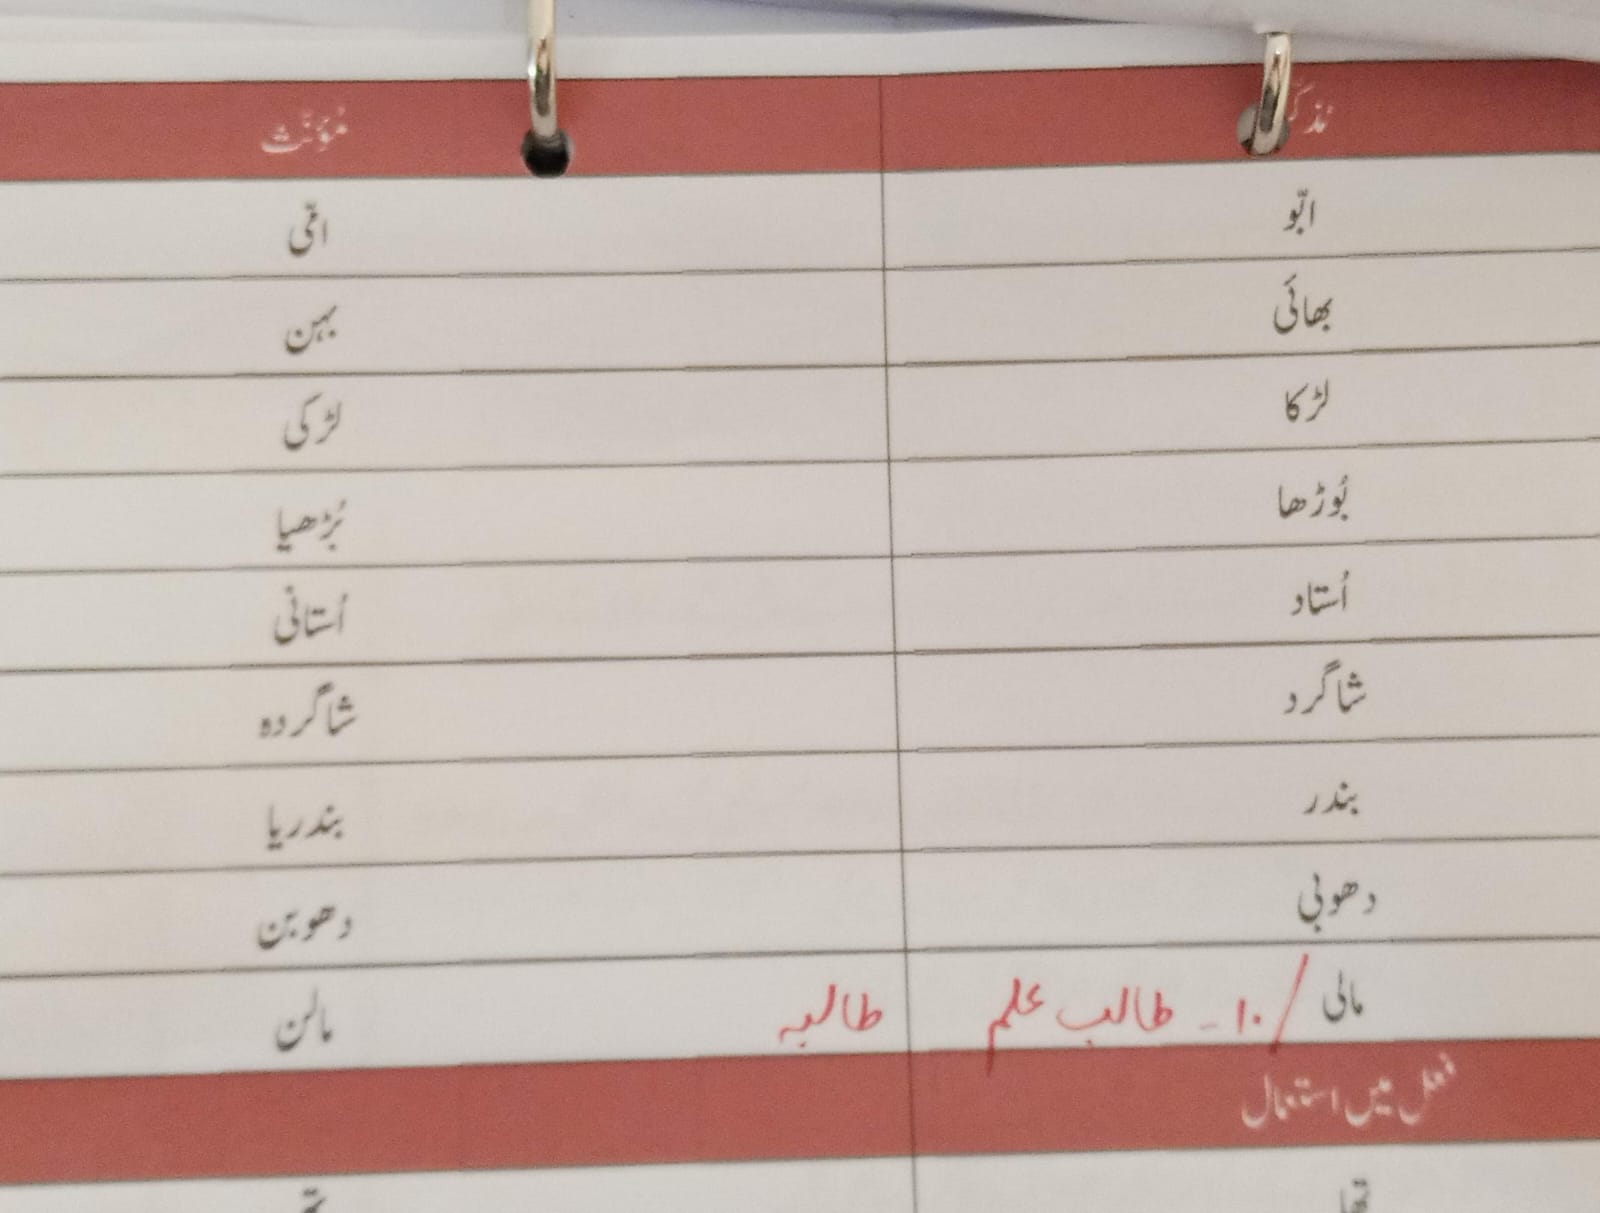 مُذکر مُؤنّث
ابّو امّی
بھائی بہن
لڑکا لڑکی
بُوڑھا بُڑھیا
اُستاد اُستانی
شاگرد شاگردہ
بندر بندریا
دھوبی دھوبن
مالی / ۱۰۔ طالب علم طالبہ مالن
فعل میں استعمال
تھا تھی